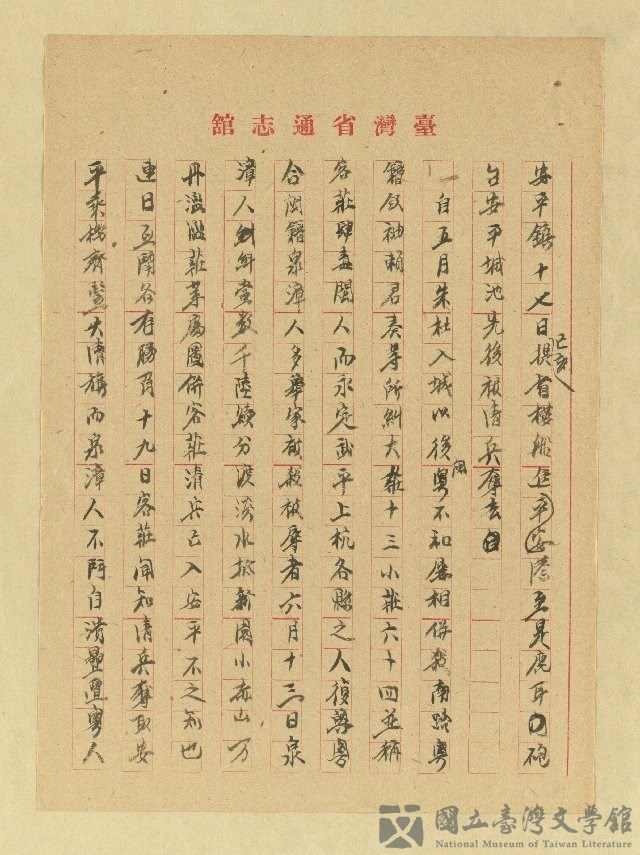 臺灣省通志舘
安平鎮十七日己亥提省樓船進平安澄至是鹿耳口砲
台安平城池先後被清兵奪去
一自五月朱杜入城以後閩粵不和屢相併殺南路粵
籍領袖賴君奏等所糾大莊十三小莊六十四並稱
客莊肆毒閩人而永定武平上杭各縣之人復與粵
合閩籍泉漳人多舉家被殺被辱者六月十三日泉
漳人糾黨數千陸續分渡淡水抵新園小赤山万
丹濫濫莊等處圖併客莊清兵已入安平不之知也
連日互鬪各有勝負十九日客莊聞知清兵奪取安
平乘機齊豎大清旗而泉漳人不鬥自潰疊遭粵人
國立臺灣文學館
National Museum of Taiwan Literature